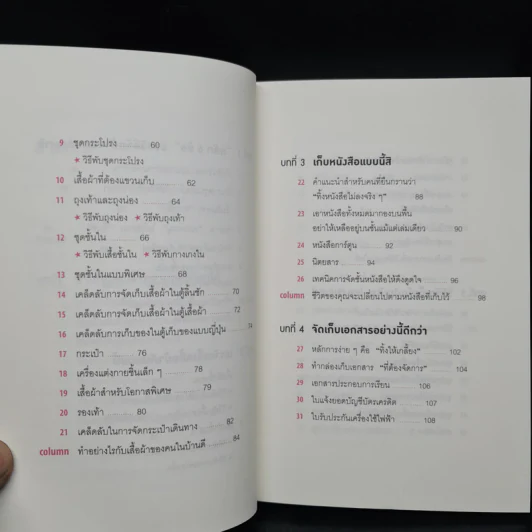 9 ชุดกระโปรง 60
★ วิธีพับชุดกระโปรง
10 เสื้อผ้าที่ต้องแขวนเก็บ 62
11 ถุงเท้าและถุงน่อง 64
★ วิธีพับถุงน่อง ★ วิธีพับถุงเท้า
12 ชุดชั้นใน 66
★ วิธีพับเสื้อชั้นใน ★ วิธีพับกางเกงใน
13 ชุดชั้นในแบบพิเศษ 68
14 เคล็ดลับการจัดเก็บเสื้อผ้าในตู้ลิ้นชัก 70
15 เคล็ดลับการจัดเก็บเสื้อผ้าในตู้เสื้อผ้า 72
16 เคล็ดลับการเก็บของในตู้เก็บของแบบญี่ปุ่น
17 กระเป๋า 76
18 เครื่องแต่งกายชิ้นเล็ก ๆ 78
19 เสื้อผ้าสำหรับโอกาสพิเศษ 79
20 รองเท้า 80
21 เคล็ดลับในการจัดกระเป๋าเดินทาง 82
column ทำอย่างไรกับเสื้อผ้าของคนในบ้านดี 84
บทที่ 3 เก็บหนังสือแบบนี้สิ
22 คำแนะนำสำหรับคนที่ยืนกรานว่า
"ทิ้งหนังสือไม่ลงจริง ๆ" 88
23 เอาหนังสือทั้งหมดมากองบนพื้น
อย่าให้เหลืออยู่บนชั้นแม้แต่เล่มเดียว 90
24 หนังสือการ์ตูน 92
25 นิตยสาร 94
26 เทคนิคการจัดชั้นหนังสือให้ดึงดูดใจ 96
column ชีวิตของคุณจะเปลี่ยนไปตามหนังสือที่เก็บไว้ 98
บทที่ 4 จัดเก็บเอกสารอย่างนี้ดีกว่า
27 หลักการง่าย ๆ คือ "ทิ้งให้เกลี้ยง" 102
28 ทำกล่องเก็บเอกสาร "ที่ต้องจัดการ" 104
29 เอกสารประกอบการเรียน 106
30 ใบแจ้งยอดบัญชีบัตรเครดิต 107
31 ใบรับประกันเครื่องใช้ไฟฟ้า 108